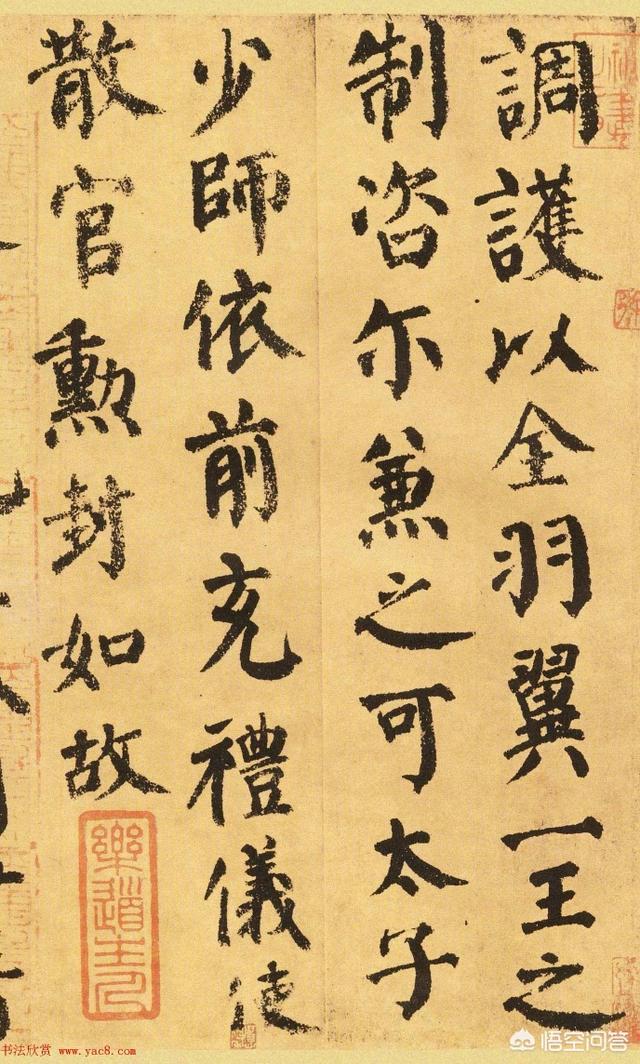 調護以全羽翼一王之
制咨尓兼之可太子
少師依前充禮儀使
散官勲封如故
樂道主人
书法欣赏 www.yac8.com
悟空问答